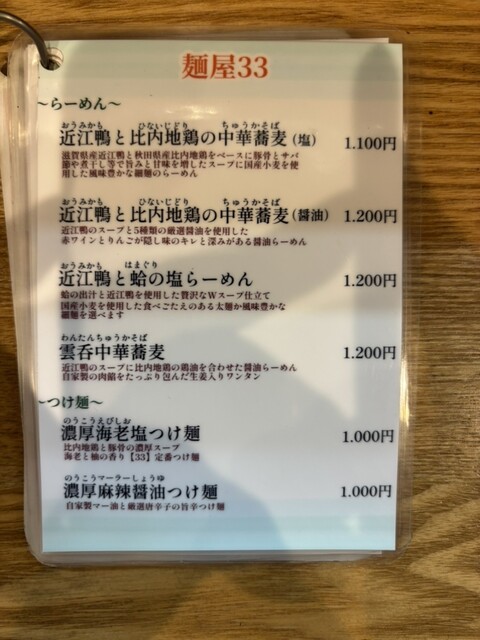 麺屋33
~らーめん~
おうみかも ひないじどり ちゅうかそば
近江鴨と比内地鶏の中華蕎麦(塩) 1.100円
滋賀県産近江鴨と秋田県産比内地鶏をベースに豚骨とサバ
節や煮干し等で旨みと甘味を増したスープに国産小麦を使
用した風味豊かな細麺のらーめん
おうみかも ひないじどり ちゅうかそば
近江鴨と比内地鶏の中華蕎麦(醤油) 1.200円
近江鴨のスープと5種類の厳選醤油を使用した
赤ワインとりんごが隠し味のキレと深みがある醤油らーめん
おうみかも はまぐり
近江鴨と蛤の塩らーめん 1.200円
蛤の出汁と近江鴨を使用した贅沢なWスープ仕立て
国産小麦を使用した食べごたえのある太麺か風味豊かな
細麺を選べます
わんたんちゅうかそば
雲呑中華蕎麦 1.200円
近江鴨のスープに比内地鶏の鶏油を合わせた醤油らーめん
自家製の肉餡をたっぷり包んだ生姜入りワンタン
~つけ麺~
のうこうえびしお
濃厚海老塩つけ麺 1.000円
比内地鶏と豚骨の濃厚スープ
海老と柚の香り【33】定番つけ麺
のうこうマーラーしょうゆ
濃厚麻辣醤油つけ麺 1.000円
自家製マー油と厳選唐辛子の旨辛つけ麺